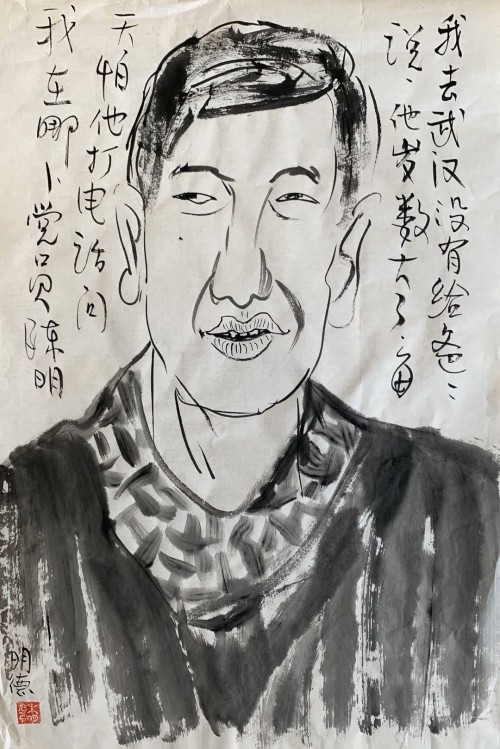 我去武汉没有给爸〻
说、他岁数大了、每
天怕他打电话问
我在哪、党员陈明
明德